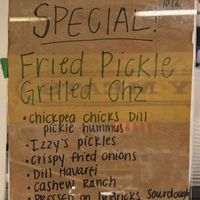 SPECIAL!
Fried Pickle
Grilled Chz
• chickpea chicks Dill
pickle hummus
• Izzy's pickles
• crispy fried onions
• Dill Havarti
• cashew Ranch
PRESSED on Bricks Sourdough